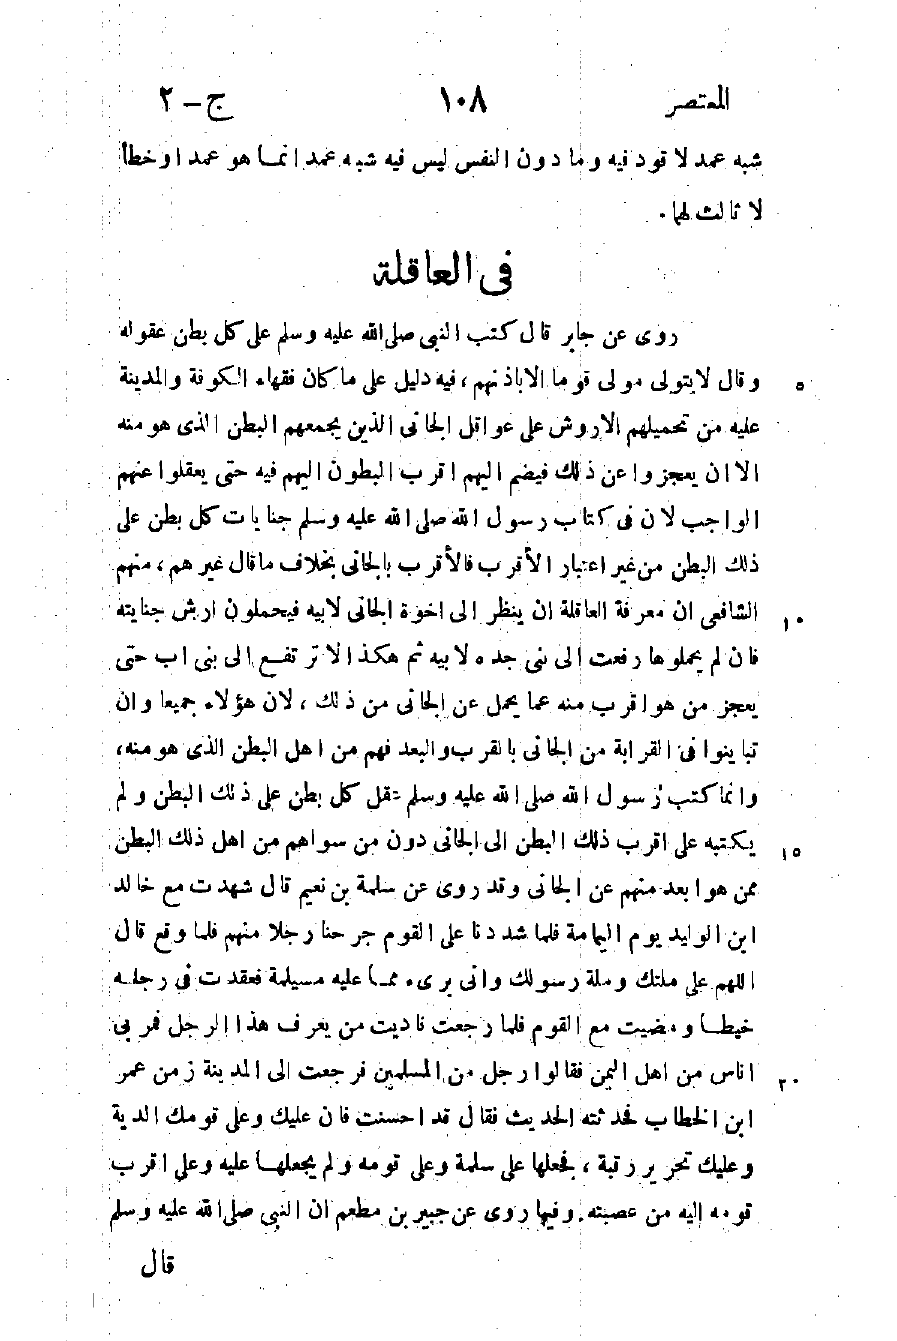 المعتصر ١٠٨ ج – ٢
شبه عمد لا قود فيه وما دون النفس ليس فيه شبه عمد انما هو عمد او خطأ
لا ثالث لهما.
فى العاقلة
روى عن جابر قال كتب النبى صلى الله عليه وسلم على كل بطن عقوله
وقال لايتولى مولى قوما الا باذنهم، فيه دليل على ماكان فقهاء الكوفة والمدينة ٥
عليه من تحميلهم الاروش على عواقل الجانى الذين يجمعهم البطن الذى هو منه
الا ان يعجزوا عن ذلك فيضم اليهم اقرب البطون اليهم فيه حتى يعقلوا عنهم
الواجب لان فى كتاب رسول الله صلى الله عليه وسلم جنايات كل بطن على
ذلك البطن من غير اعتبار الأقرب فالأقرب بالجانى بخلاف ماقال غيرهم، منهم
الشافعى ان معرفة العاقلة ان ينظر الى اخوة الجانى لابيه فيحملون ارش جنايته ١٠
فان لم يحملوها رفعت الى بنى جده لابيه ثم هكذا لا ترتفع الى بنى اب حتى
يعجز من هو اقرب منه عما يحمل عن الجانى من ذلك، لان هؤلاء جميعا وان
تباينوا فى القرابة من الجانى بالقرب والبعد فهم من اهل البطن الذى هو منه،
وانما كتب رسول الله صلى الله عليه وسلم عقل كل بطن على ذلك البطن ولم
يكتبه على اقرب ذلك البطن الى الجانى دون من سواهم من اهل ذلك البطن ١٥
ممن هو ابعد منهم عن الجانى وقد روى عن سلمة بن نعيم قال شهدت مع خالد
ابن الوليد يوم اليمامة فلما شددنا على القوم جرحنا رجلا منهم فلما وقع قال
اللهم على ملتك وملة رسولك وانى برىء مما عليه مسيلمة فعقدت فى رجله
خيطا ومضيت مع القوم فلما رجعت ناديت من يعرف هذا الرجل فمر بى
اناس من اهل اليمن فقالوا رجل من المسلمين فرجعت الى المدينة زمن عمر ٢٠
ابن الخطاب فحدثته الحديث فقال قد احسنت فان عليك وعلى قومك الدية
وعليك تحرير رقبة، فجعلها على سلمة وعلى قومه ولم يجعلها عليه وعلى اقرب
قومه إليه من عصبته. وفيما روى عن جبير بن مطعم ان النبى صلى الله عليه وسلم
قال